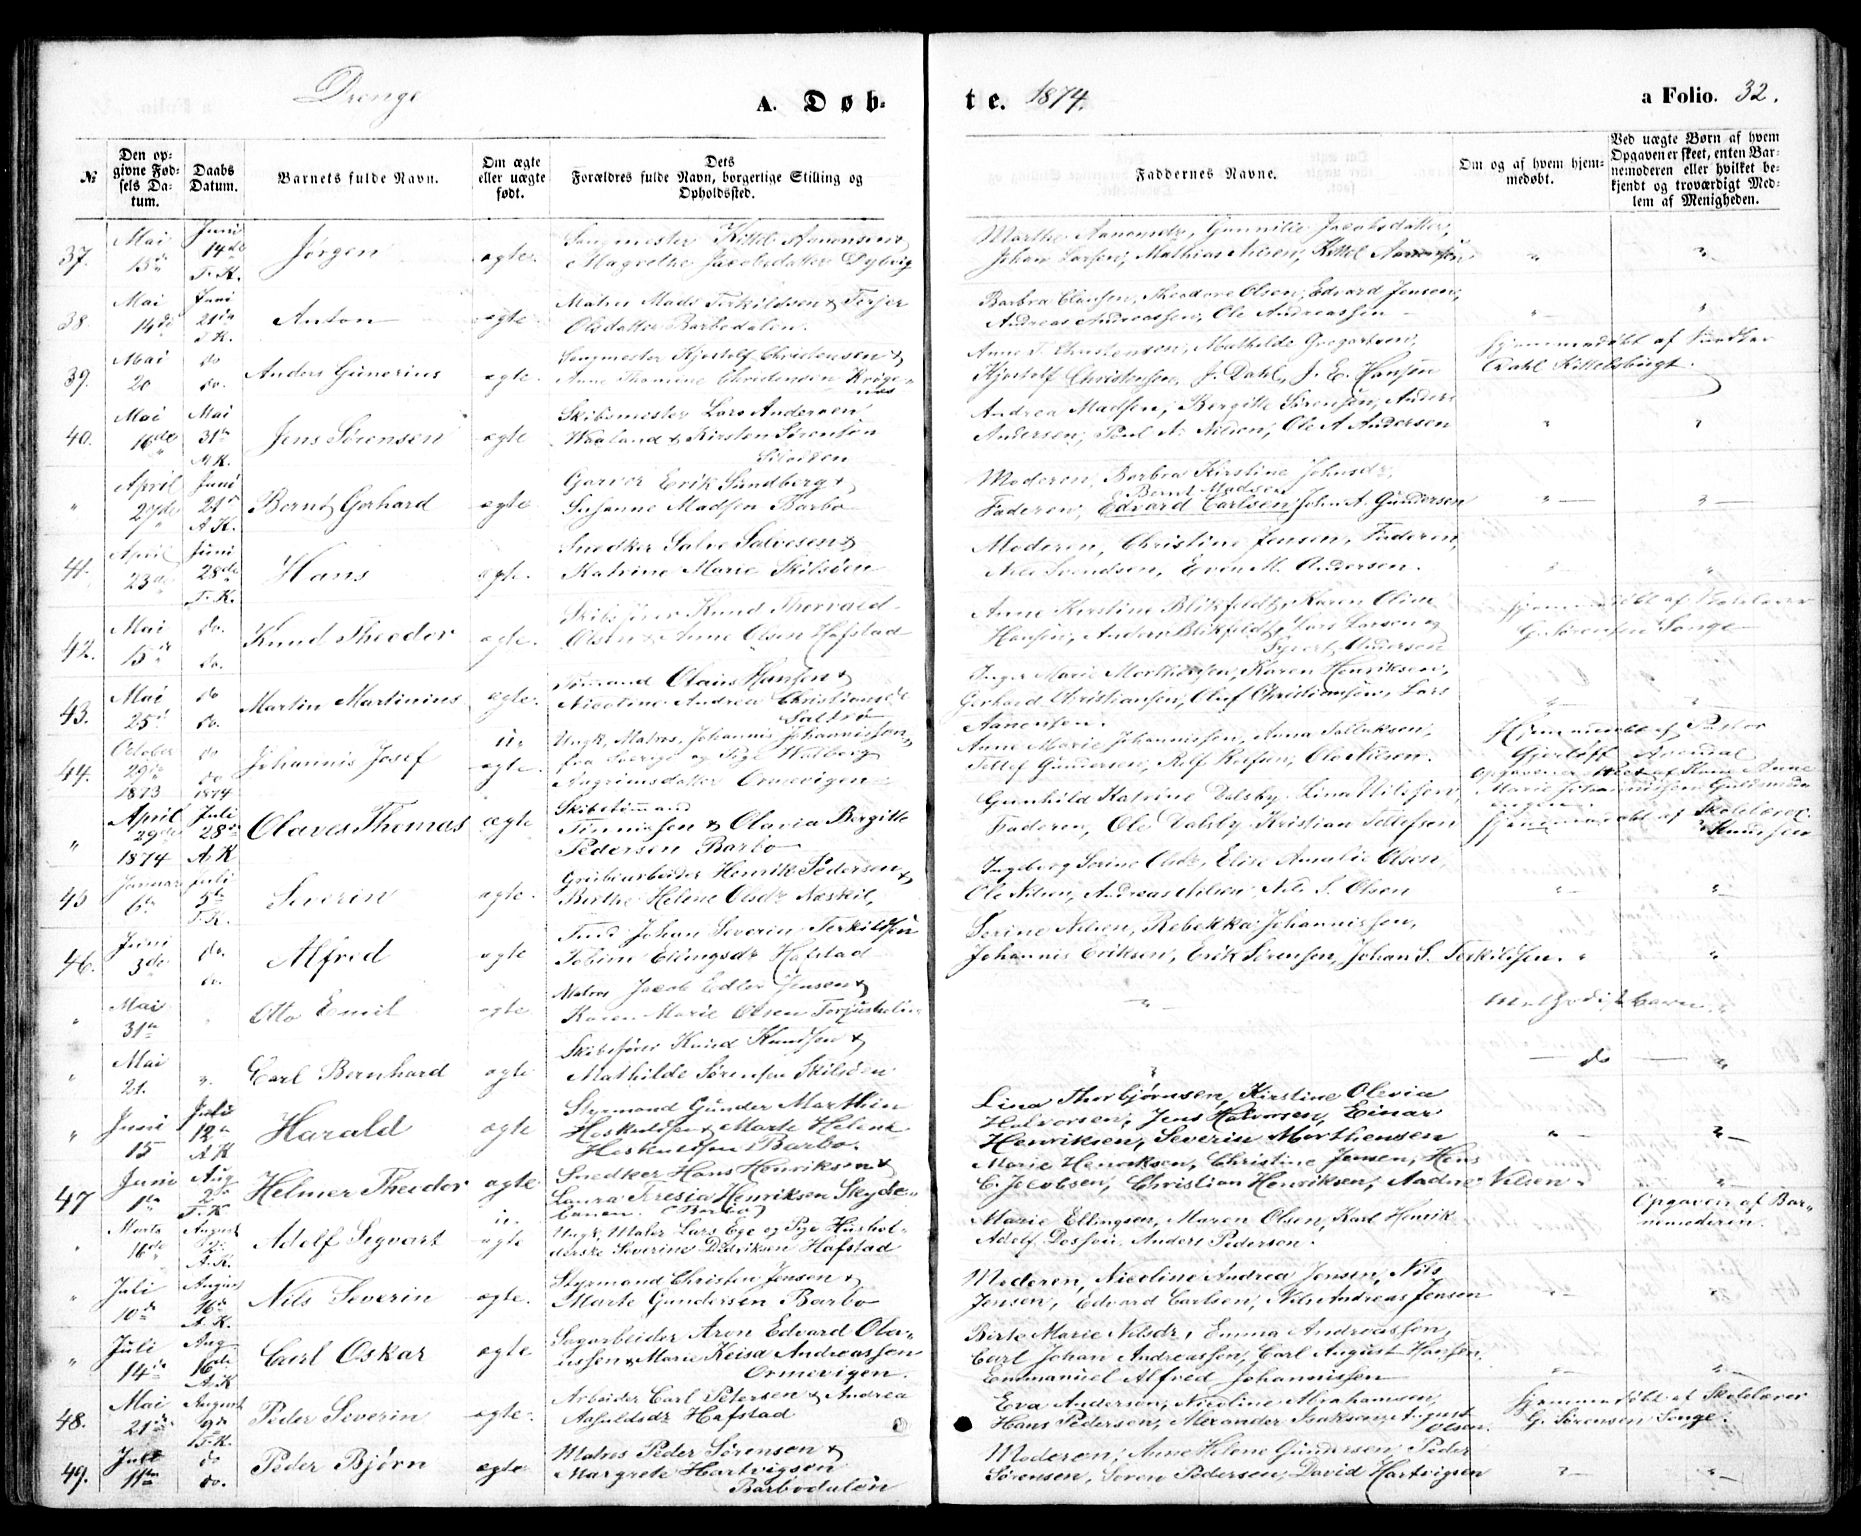 Drenge
A. Døb-
te. 1874.
a Folio. 32.
№
Den op-
givne Fød-
sels Da-
tum.
Daabs
Datum.
Barnets fulde Navn.
Om ægte
eller uægte
født.
Dets
Forældres fulde Navn, borgerlige Stilling og
Opholdssted.
Faddernes Navne.
Om og af hvem hjem-
medøbt.
Ved uægte Børn af hvem
Opgaven er skeet, enten Bar-
nemoderen eller hvilket be-
kjendt og troværdigt Med-
lem af Menigheden.
37. Mai 15de Juni 14de F.K. Jørgen ægte.
Kittel Aanonsen &
Magrethe Jacobsdatter Dybvig
Marthe Aanonsdr, Gunnilie Jacobsdatter,
Johan Larsen, Mathias Nilsen, Kittel Aanonsen
38. Mai 14de Juni 21de F.K. Anton ægte.
Matros Mads Terkildsen & Terjer
Olsdatter Barbodalen.
Barbra Clausen, Theodore Olsen, Edvard Jensen,
Andreas Andreassen, Ole Andreassen
39. Mai 20 do do. Anders Gunerius ægte.
Kjøstolf Christensen &
Anne Thomine Christensen
Kjøstolf Christensen, J. Dahl, J. E. Hansen
Hjemmedøbt af
Dahl Kittelsbugt.
40. Mai 16de Mai 31te A.K. Jens Sørensen ægte
Skibsmester Lars Andersen
& Kirsten Sørensen
Skilsøen
Andrea Madsen, Bergitte Sørensen, Anders
Andersen, Poul A. Nilsen, Ole A Andersen
" April 27de Juni 21de A.K. Bernt Gerhard ægte
Garver Erik Sundberg &
Susanne Madsen Barbo
Moderen, Barbra Kirstine Johnsdr,
Bernt Madsen
Faderen, Edvard Carlsen John A. Gundersen
41. April 23de Juni 28de F.K. Hans ægte.
Snedker Salve Salvesen &
Katrine Marie Skilsøen
Moderen, Christine Jensen, Faderen,
Nils Svendsen, Even M. Andersen.
42. Mai 15de do. do. Knud Theodor ægte.
Skibsfører Knud Thorvald
Olsen & Anne Olsen Hafstad
Anne Kirstine Blikfeldt, Karen Oline
Hansen, Anders Blikfeldt, Lars Larsen og
Syvert Andersen
Hjemmedøbt af Skolelærer
G. Sørensen Songe
43. Mai 25de do do. Martin Martinius ægte.
Tømmand Olaus Hansen &
Nicoline Andrea Christiansdr
Saltrø
Inger Marie Morthensen, Karen Henriksen,
Gerhard Christiansen, Oluf Christiansen, Lars
Aanensen.
44. October 29de 1873 do do 1874 Johannis Josef u-
ægte.
Ungk, Matros, Johannis Johannissen
fra Sverige og Pige Walborg
Asgrimsdatter Ormevigen
Anne Marie Johannissen, Anna Tallaksen,
Tellef Gundersen, Rolf Rolfsen, Ole Nilsen.
Hjemmedøbt af Pastor
Gjerløff Arendal
Opgaven er skeet af Kone Anne
Marie Johannissen
" April 29de 1874 Juli 28de A.K Olaves Thomas ægte
Skibstømmand
Tønnissen & Olavia Bergitte
Pedersen Barbo
Gunhild Katrine Dalsby, Lina Nilsen,
Faderen, Ole Dalsby Kristian Tellefsen
Hjemmedøbt af Skolelærer
Knudsen
45 Januar 6te Juli 5te F.K. Severin ægte.
Grubearbeider Henrik Pedersen &
Birthe Helene Olsdr Næskil,
Ingeborg Serine Olsdr, Elise Amalie Olsen,
Ole Nilsen, Andreas Nilsen, Nils S. Olsen
46. Juni 3de do. do. Alfred ægte
Tmd Johan Severin Terkildsen
Tobine Ellingsdr Hafstad
Serine Nilsen, Rebekka Johannissen,
Johannis Eriksen, Erik Sørensen, Johan S. Terkildsen.
" Mai 31te Otto Emil ægte
Matros Jacob Edler Jensen &
Karen Marie Olsen
" Mai 21. Carl Bernhard ægte
Skibsfører Knud Knudsen &
Mathilde Sørensen Skilsøen
do
" Juni 15 Juli 12te A K Harald ægte
Styrmand Gunder Marthin
Hoskuldsen & Marte Helene
Hoskuldsen Barbo.
Lina Thorbjørnsen, Kirstine Olevia
Halvorsen, Jens Halvorsen, Einar
Henriksen, Severin Morthensen
47 Juni 1te Aug 2de F.K Helmer Theodor ægte
Snedker Hans Henriksen &
Laura Iresia Henriksen Skyde-
banen. (Barbo)
Marie Henriksen, Christine Jensen, Hans
C. Jacobsen, Christian Henriksen, Aadne Nilsen
" Marts 16de August 2. A.K. Adolf Sigvart u-
ægte
Ungk, Maler Lars Ege og Pige Hushol-
derske Severine Didriksen Hafstad
Marie Ellingsen, Maren Olsen, Karl Henrik
Adolf Dossen, Anders Pedersen.
Opgaven af Bar-
nemoderen.
" Juli 10de August 16de A.K. Nils Severin ægte.
Styrmand Christen Jensen &
Marte Gundersen Barbo
Moderen, Nicoline Andrea Jensen, Nils
Jensen, Edvard Carlsen, Nils Andreas Jensen
" Juli 14de Aug 16de A.K Carl Oskar ægte
Sagarbeider Aron Edvard Ola-
ussen & Marie Keisa Andreassen
Ormevigen.
Birte Marie Nilsdr, Emma Andreassen,
Carl Johan Andreassen, Carl August Hansen,
Emmanuel Alfred Johannissen
48. Mai 21de August 9de F.K. Peder Severin ægte.
Arbeider Carl Petersen & Andrea
Aasuldsdr Hafstad
Eva Andersen, Nicoline Abrahamsen,
Hans Pedersen, Alexander Isaksen, August
Olsen.
Hjemmedøbt af Skolelærer
G. Sørensen Songe.
49. Juli 11te do do. Peder Bjørn ægte
Matros Peder Sørensen &
Margrete Hartvigsen
Barbodalen
Moderen, Anne Helene Gundersen, Peder
Sørensen, Søren Pedersen, David Hartvigsen